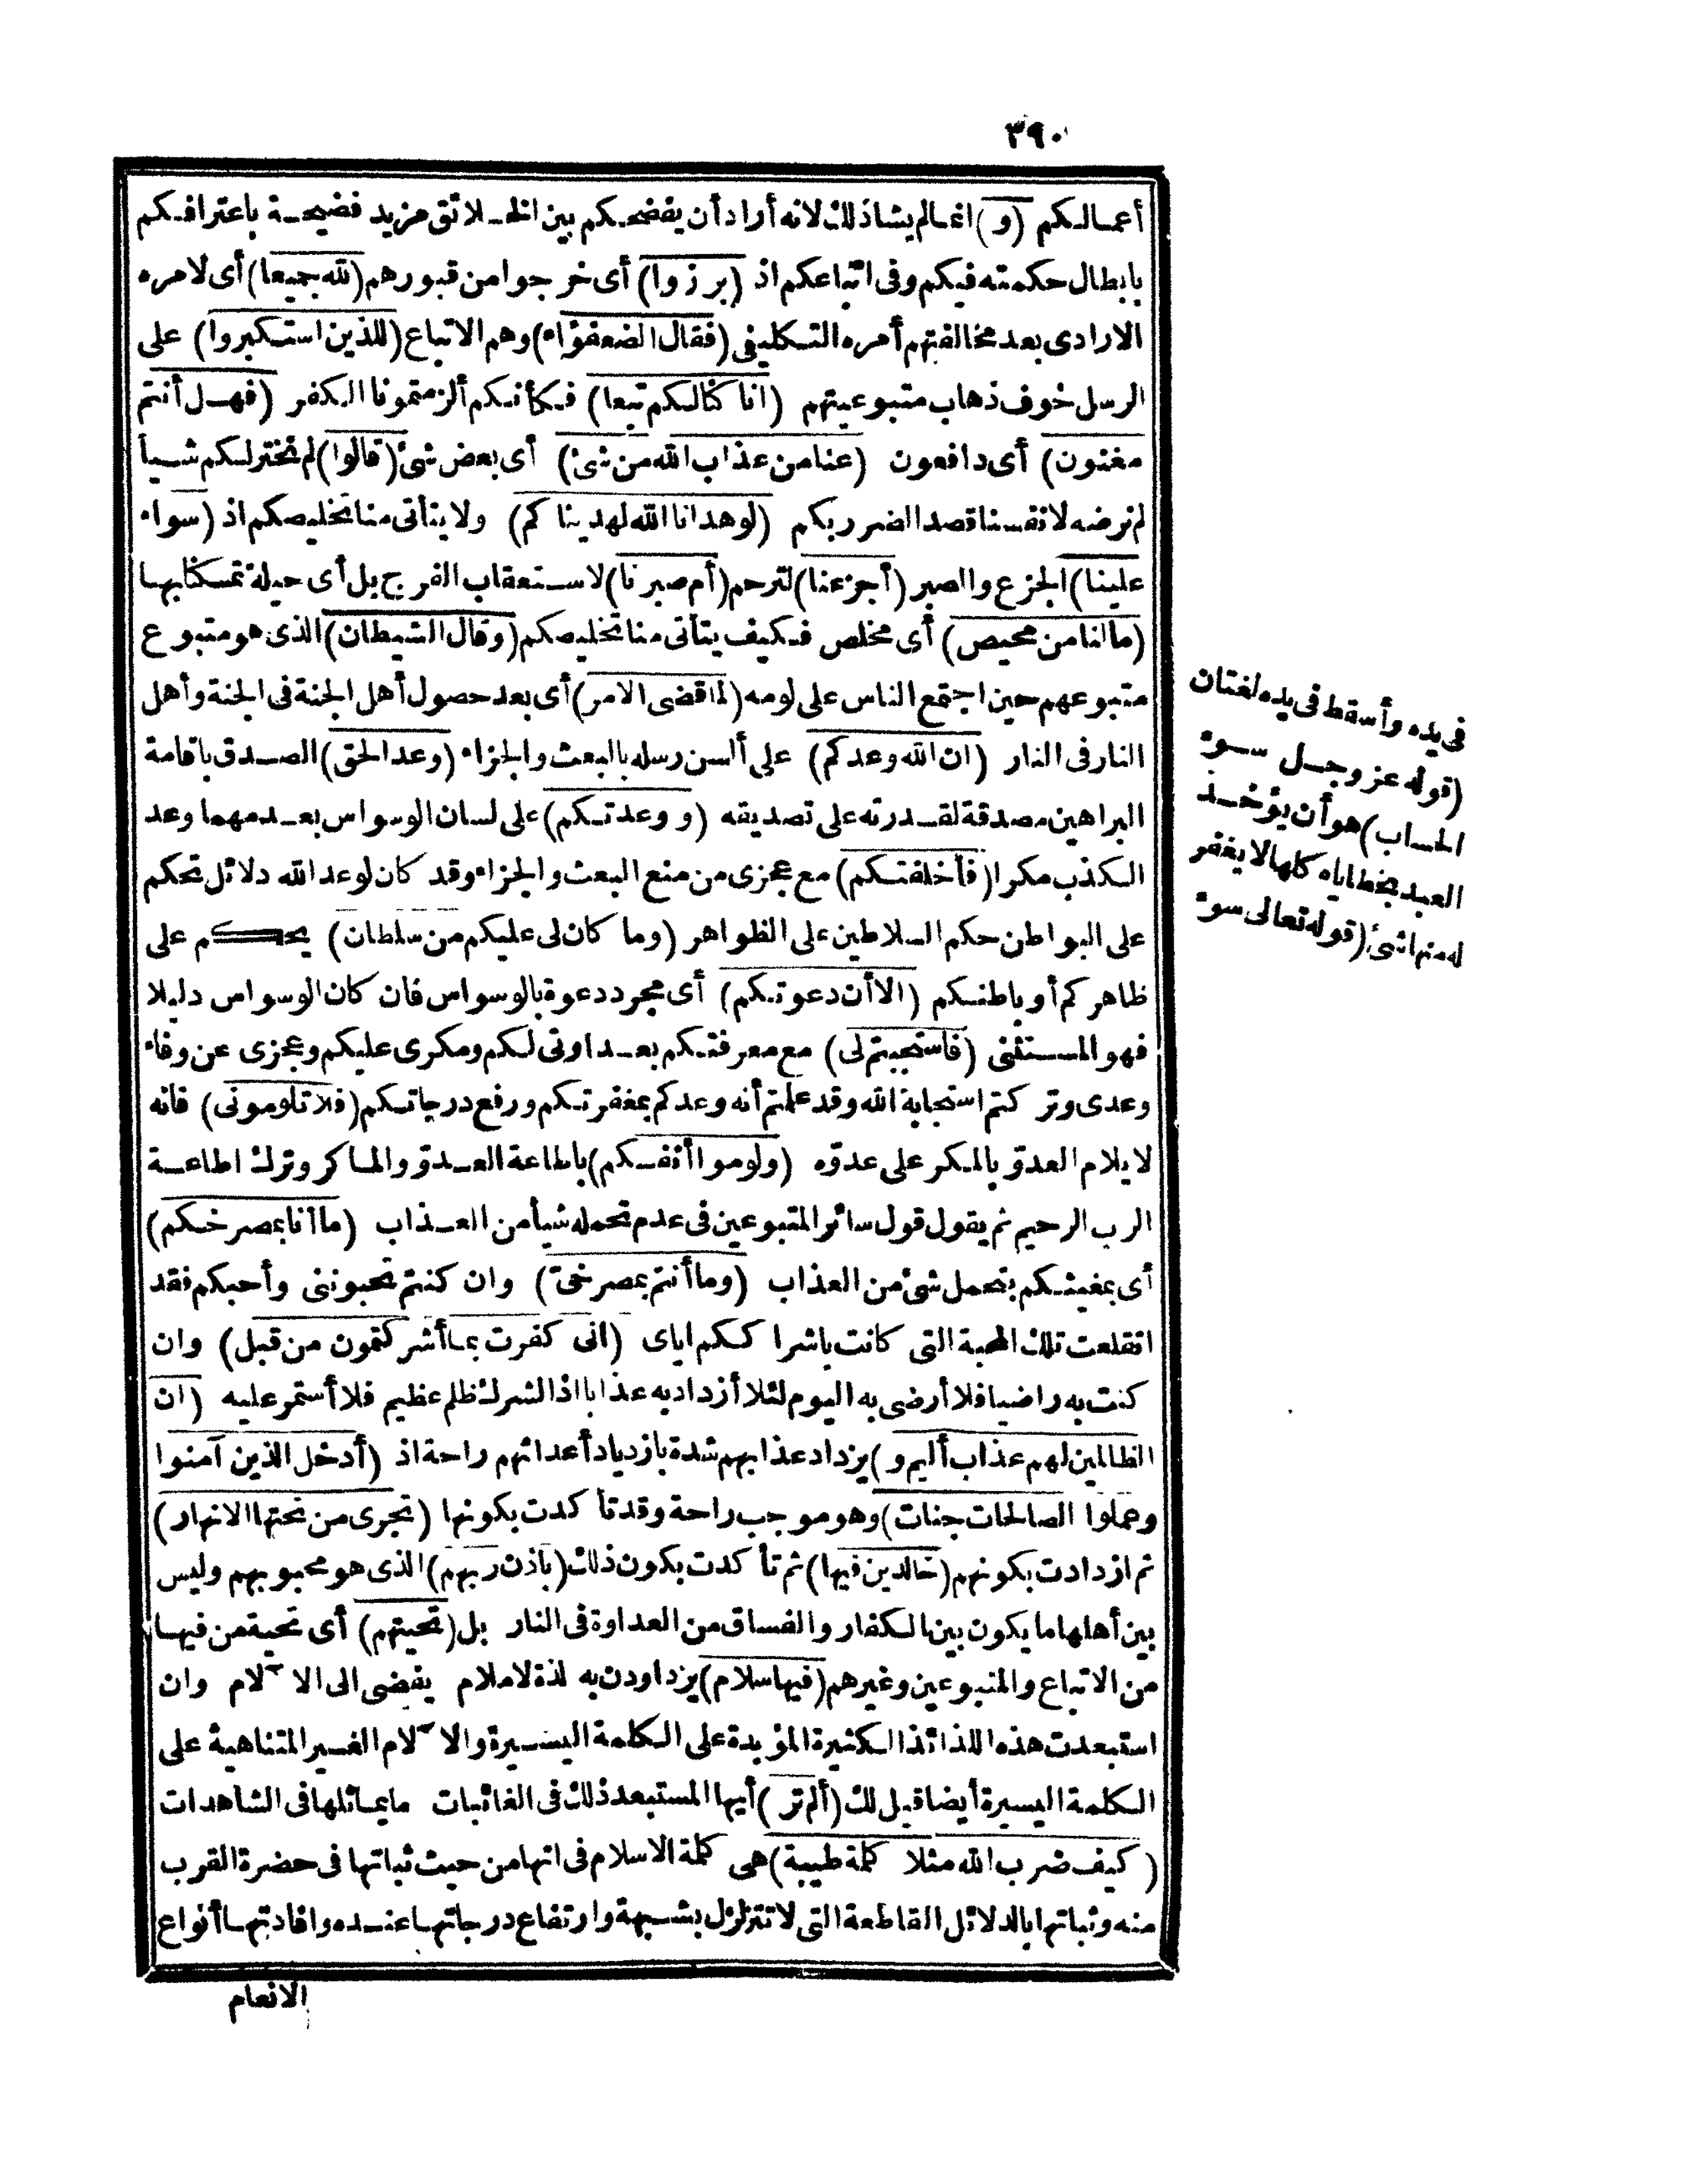 ٣٩٠
أعمالكم (و) انما لم يشأ ذلك لانه أراد أن يفضحكم بين الخلائق مزيد فضيحة باعترافكم
بابطال حكمته فيكم وفى اتباعكم اذ (برزوا) أى خرجوا من قبورهم (لله جميعا) أى لامره
الارادى بعد مخالفتهم أمره التكليفى (فقال الضعفؤاء) وهم الاتباع (للذين استكبروا) على
الرسل خوف ذهاب متبوعيتهم (انا كنا لكم تبعا) فكأنكم ألزمتمونا الكفر (فهل أنتم
مغنون) أى دافعون (عنا من عذاب الله من شئ) أى بعض شئ (قالوا) لم نختر لكم شيأ
لم نرضه لانفسنا قصدا لضرر بكم (لو هدانا الله لهديناكم) ولا يتأتى منا تخليصكم اذ (سواء
علينا) الجزع والصبر (أجزعنا) لترحم (أم صبرنا) لاستعقاب الفرج بل أى حيلة تمسكنا بها
(مالنا من محيص) أى مخلص فكيف يتأتى منا تخليصكم (وقال الشيطان) الذى هو متبوع
متبوعهم حين اجتمع الناس على لومه (لما قضى الامر) أى بعد حصول أهل الجنة فى الجنة وأهل
النار فى النار (ان الله وعدكم) على ألسن رسله بالبعث والجزاء (وعد الحق) الصدق باقامة
البراهين مصدقة لقدرته على تصديقه (ووعدتكم) على لسان الوسواس بعدمهما وعد
الكذب مكرا (فأخلفتكم) مع عجزى من منع البعث والجزاء وقد كان لوعد الله دلائل تحكم
على البواطن حكم السلاطين على الظواهر (وما كان لى عليكم من سلطان) يحكم على
ظاهركم أو باطنكم (الا أن دعوتكم) أى مجرد دعوة بالوسواس فان كان الوسواس دليلا
فهو المستثنى (فاستجبتم لى) مع معرفتكم بعداوتى لكم ومكرى عليكم وعجزى عن وفاء
وعدى وتركتم استجابة الله وقد علمتم أنه وعدكم بمغفرتكم ورفع درجاتكم (فلا تلومونى) فانه
لا يلام العدو بالمكر على عدوّه (ولوموا أنفسكم) باطاعة العدوّ والماكر وترك اطاعة
الرب الرحيم ثم يقول قول سائر المتبوعين فى عدم تحمله شيأ من العذاب (ما أنا بمصرخكم)
أى بمغيثكم بتحمل شئ من العذاب (وما أنتم بمصرخىّ) وان كنتم تحبوننى وأحبكم فقد
انقلعت تلك المحبة التى كانت باشراككم اياى (انى كفرت بما أشركتمون من قبل) وان
كنت به راضيا فلا أرضى به اليوم لئلا أزداد به عذابا اذ الشرك ظلم عظيم فلا أستمر عليه (ان
الظالمين لهم عذاب أليم و) يزداد عذابهم شدة بازدياد أعدائهم راحة اذ (أدخل الذين آمنوا
وعملوا الصالحات جنات) وهو موجب راحة وقد تأكدت بكونها (تجرى من تحتها الانهار)
ثم ازدادت بكونهم (خالدين فيها) ثم تأكدت بكون ذلك (باذن ربهم) الذى هو محبوبهم وليس
بين أهلها ما يكون بين الكفار والفساق من العداوة فى النار بل (تحيتهم) أى تحية من فيها
من الاتباع والمتبوعين وغيرهم (فيها سلام) يزدادون به لذة لا ملام يفضى الى الآلام وان
استبعدت هذه اللذائذ الكثيرة المؤبدة على الكلمة اليسيرة والآلام الغير المتناهية على
الكلمة اليسيرة أيضا قيل لك (ألم تر) أيها المستبعد ذلك فى الغائبات ما يماثلها فى الشاهدات
(كيف ضرب الله مثلا كلمة طيبة) هى كلمة الاسلام فى انها من حيث ثباتها فى حضرة القرب
منه وثباتها بالدلائل القاطعة التى لا تتزلزل بشبهة وارتفاع درجاتها عنده وافادتها أنواع
الانعام
فى يده وأسقط فى يده لغتان
(قوله عز وجل سوء
الحساب) هو أن يؤخذ
العبد بخطاياه كلها لا يغفر
له منها شئ (قوله تعالى سوء